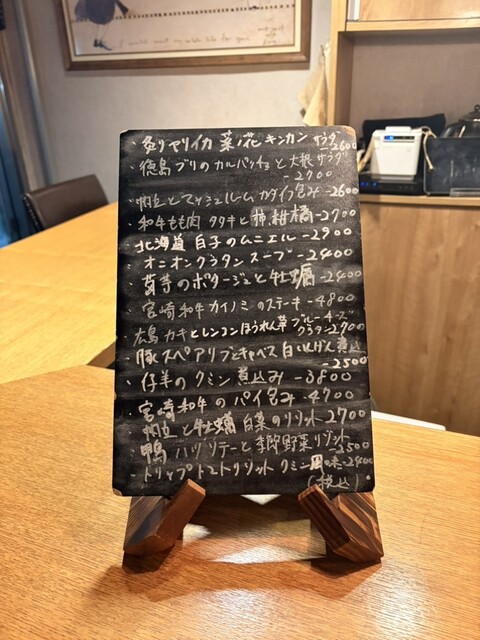 ・炙りヤリイカ 菜ノ花 キンカン サラダ
-2600
・徳島ブリのカルパッチョと大根サラダ
-2700
・帆立とマッシュルーム カダイフ包み -2600
・和牛もも肉 タタキと 柿、柑橘 -2700
・北海道 白子のムニエル -2900
・オニオングラタンスープ -2400
・菊芋のポタージュと牡蠣 -2400
・宮崎和牛 カイノミのステーキ -4800
・広島カキとレンコンほうれん草 ブルーチーズ
グラタン 2700
・豚スペアリブとキャベツ 白いんげん煮込
-2500
・仔羊のクミン煮込み -3800
・宮崎和牛のパイ包み -4700
・帆立と牡蠣 白菜のリゾット 2700
・鴨ハツソテーと季節野菜リゾット
-2500
・トリップトマトリゾット クミン風味 -2400
(税込)